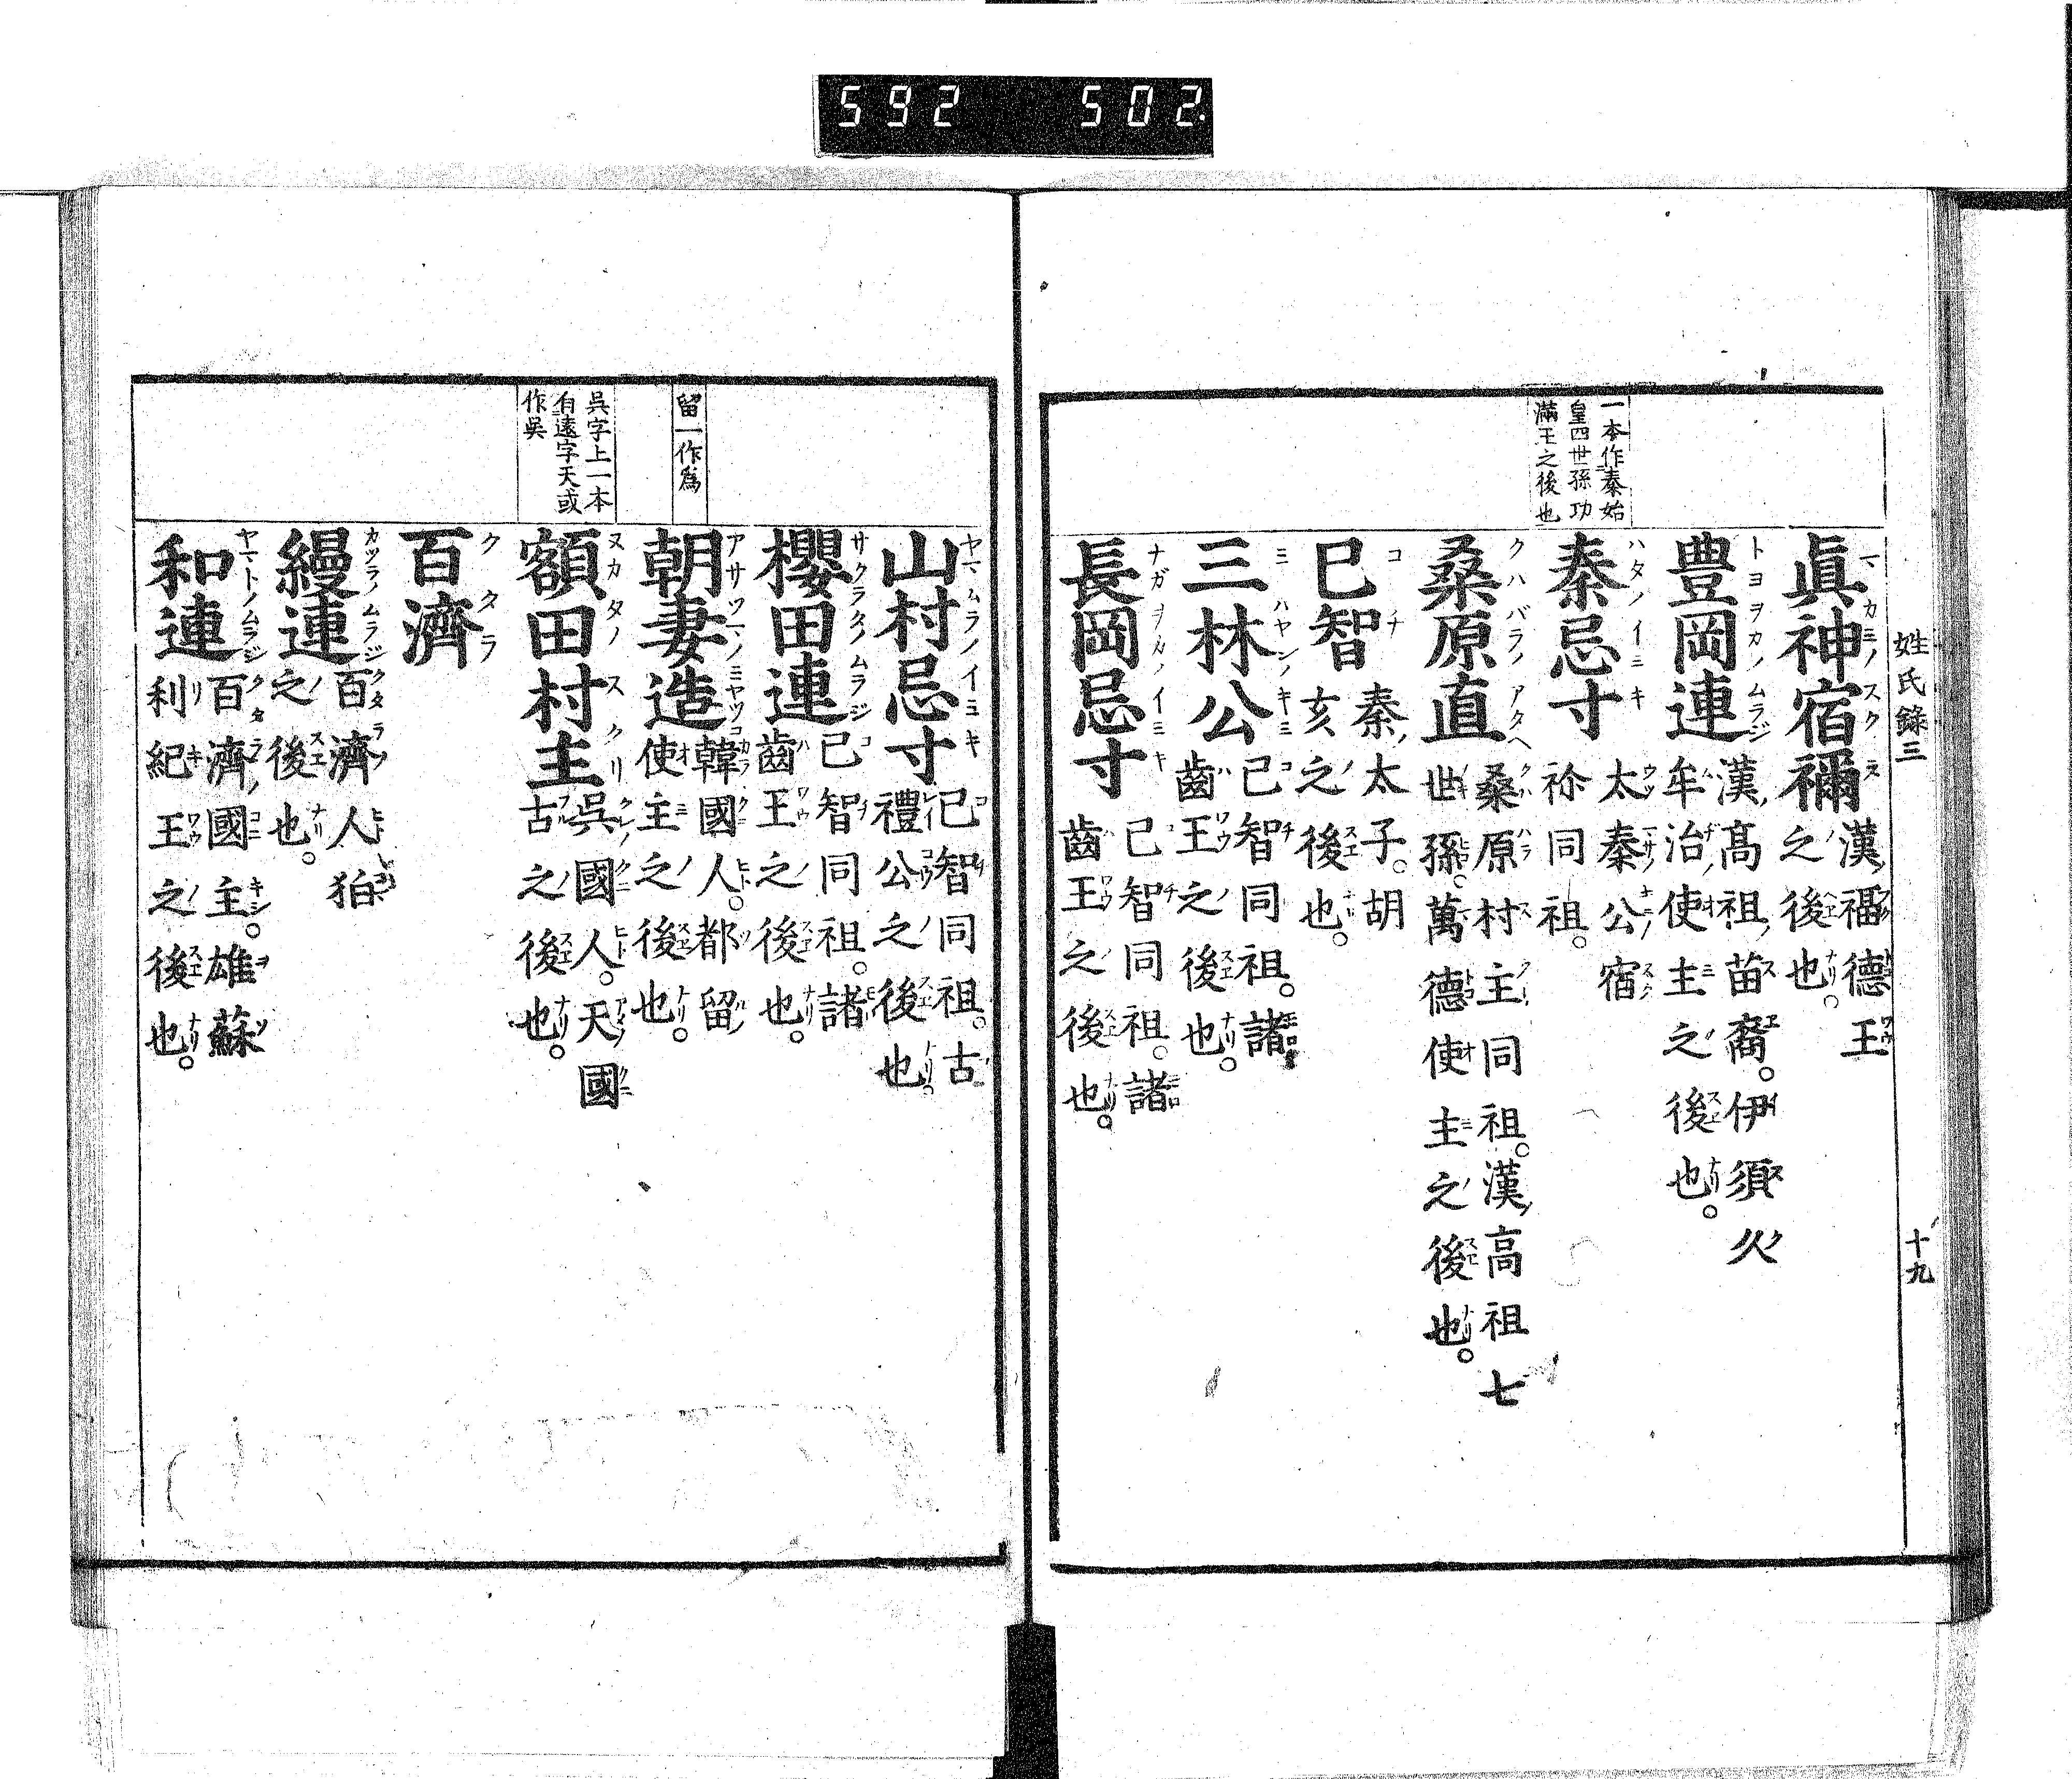 592 502
姓氏錄三
十九
一本作秦始
皇四世孫功
滿王之後也
眞神宿禰
漢福德王
之後也。
豊岡連
漢髙祖苗裔。伊須久
牟治使主之後也。
秦忌寸
太秦公宿
祢同祖。
桑原直
桑原村主同祖。漢高祖七
世孫。萬德使主之後也。
巳智
秦太子。胡
亥之後也。
三林公
己智同祖。諸
齒王之後也。
長岡忌寸
己智同祖。諸
齒王之後也。
留一作爲
呉字上一本
有遠字天或
作吳
山村忌寸
己智同祖。古
禮公之後也。
櫻田連
己智同祖。諸
齒王之後也。
朝妻造
韓國人。都留
使主之後也。
額田村主
呉國人。天國
古之後也。
百濟
縵連
百濟人狛
之後也。
和連
百濟國主。雄蘇
利紀王之後也。